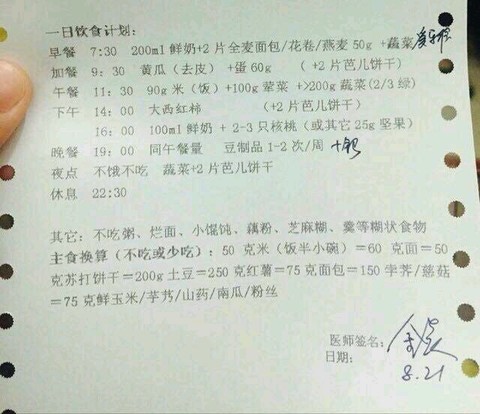 一日饮食计划:
早餐 7:30 200ml 鲜奶+2 片全麦面包/花卷/燕麦 50g +蔬菜
加餐 9:30 黄瓜（去皮） +蛋 60g （+2 片芭儿饼干）
午餐 11:30 90g 米（饭）+100g 荤菜 +>200g 蔬菜(2/3 绿)
下午 14:00 大西红柿 （+2 片芭儿饼干）
16:00 100ml 鲜奶 + 2-3 只核桃（或其它 25g 坚果）
晚餐 19:00 同午餐量 豆制品 1-2 次/周
夜点 不饿不吃 蔬菜+2 片芭儿饼干
休息 22:30
其它: 不吃粥、烂面、小馄饨、藕粉、芝麻糊、羹等糊状食物
主食换算（不吃或少吃）: 50 克米（饭半小碗）=60 克面=50
克苏打饼干=200g 土豆=250 克红薯=75 克面包=150 荸荠/慈菇
=75 克鲜玉米/芋艿/山药/南瓜/粉丝
医师签名:
日期:
8.21